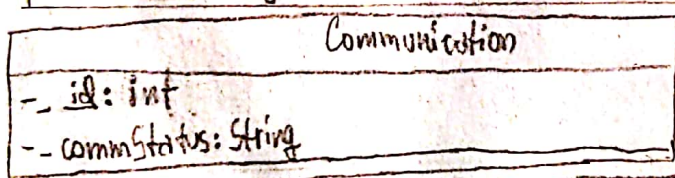 Communication
-- id: int
-- commStatus: String